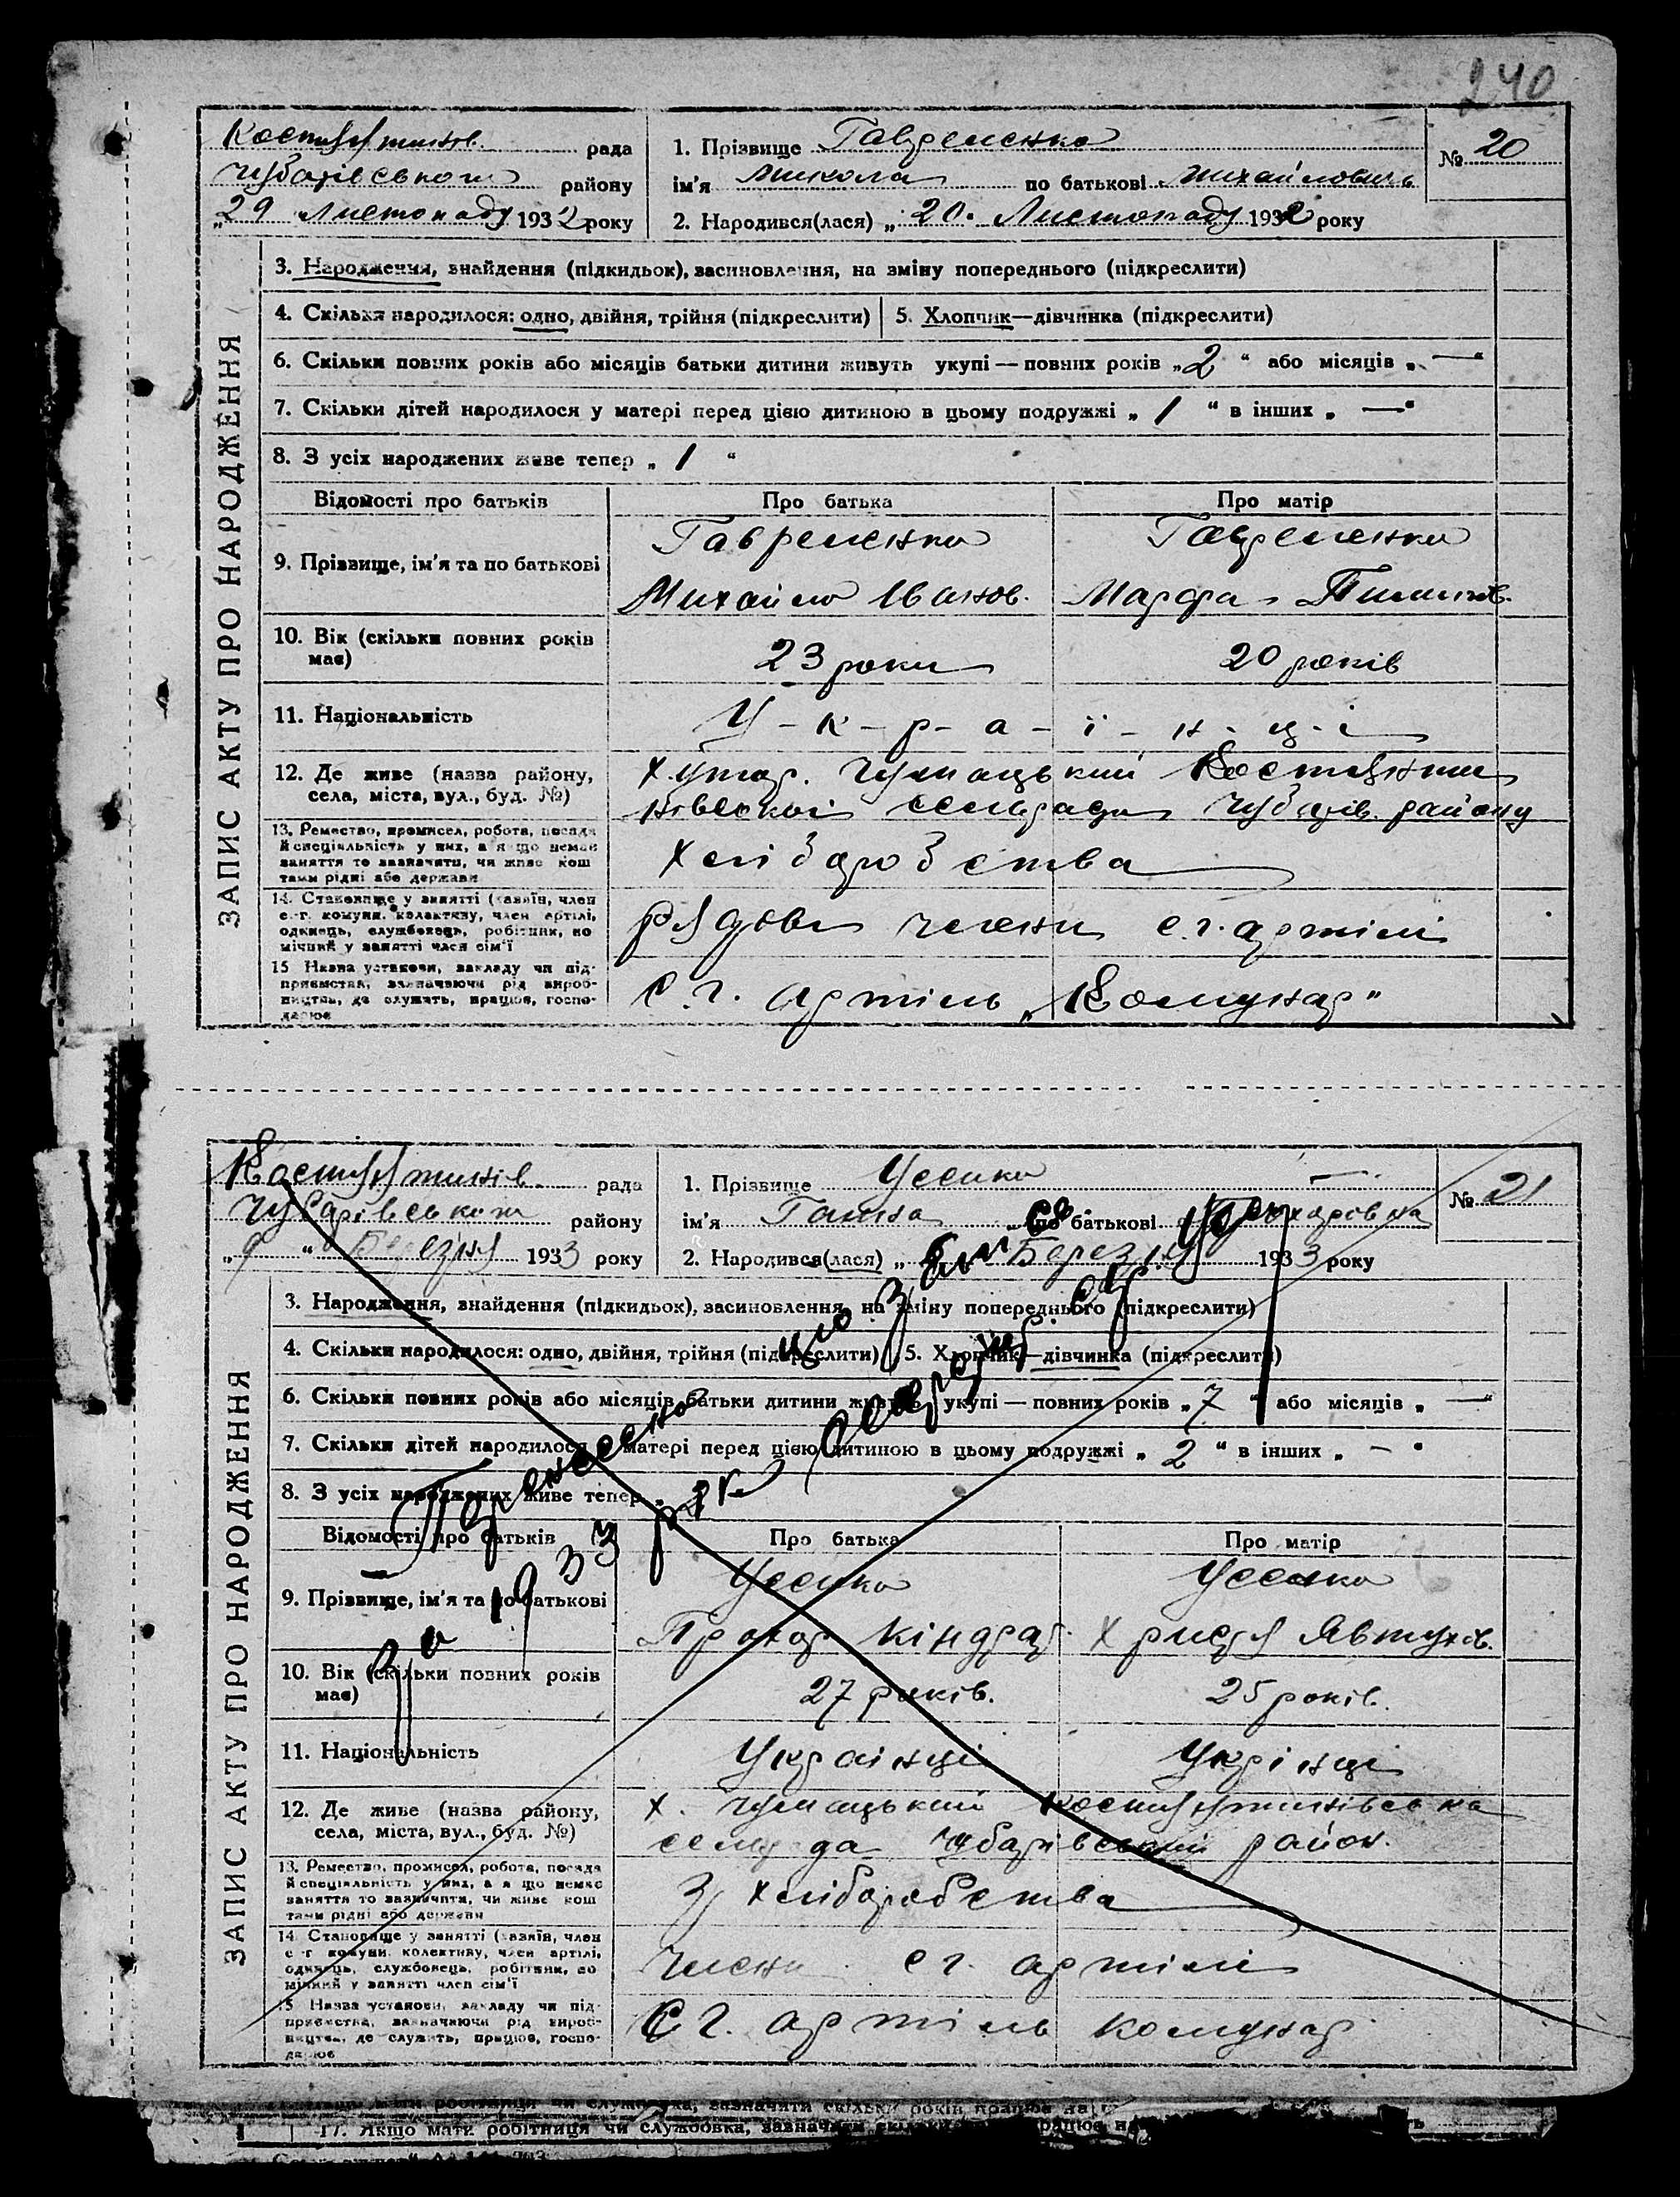 240
Костянтинів. рада
Чубарівського району
„29 Листопаду 1932 року
1. Прізвище Гавреленко
ім'я Микола по батькові Михайлович
2. Народився(лася) „20. Листопаду 1932 року
№ 20
ЗАПИС АКТУ ПРО НАРОДЖЕННЯ
3. Народження, знайдення (підкидьок), засиновлення, на зміну попереднього (підкреслити)
4. Скільки народилося: одно, двійня, трійня (підкреслити)
5. Хлопчик—дівчинка (підкреслити)
6. Скільки повних років або місяців батьки дитини живуть укупі — повних років „2 “ або місяців „ — “
7. Скільки дітей народилося у матері перед цією дитиною в цьому подружжі „ 1 “ в інших „ — “
8. З усіх народжених живе тепер „ 1 “
Відомості про батьків Про батька Про матір
9. Прізвище, ім'я та по батькові
Гавреленко Гавреленко
Михайло Іванов. Марфа
10. Вік (скільки повних років має)
23 роки 20 років
11. Національність
У - к - р - а - ї - н - ц - і
12. Де живе (назва району, села, міста, вул., буд. №)
Хутор. Чумацький Костянти
нівської сельради Чубарів. району
13. Ремество, промисел, робота, посада
й спеціяльність у них, а якщо немає
заняття то зазначити, чи живе кош
тами рідні або держави
Хліборобства
14. Становище у занятті (хазяїн, член
с.-г. комуни, колективу, член артілі,
одинець, службовець, робітник, по
мічний у занятті член сім'ї
Рядові члени с.г. артілі
15 Назва установи, закладу чи під-
приємства, зазначаючи рід вироб-
ництва, де служить, працює, госпо-
дарює
С.г. артіль „Комунар“
Костянтинів. рада
Чубарівського району
„9 “ Березня 1933 року
1. Прізвище Усенко
ім'я Ганна по батькові Прохоровна
2. Народився(лася) „ Березня 1933 року
№ 21
Перенесено
на 1933 рік
ЗАПИС АКТУ ПРО НАРОДЖЕННЯ
3. Народження, знайдення (підкидьок), засиновлення, на зміну попереднього (підкреслити)
4. Скільки народилося: одно, двійня, трійня (підкреслити)
5. Хлопчик—дівчинка (підкреслити)
6. Скільки повних років або місяців батьки дитини живуть укупі — повних років „7 “ або місяців „ — “
7. Скільки дітей народилося у матері перед цією дитиною в цьому подружжі „ 2 “ в інших „ — “
8. З усіх народжених живе тепер „
Відомості про батьків Про батька Про матір
9. Прізвище, ім'я та по батькові
Усенко Усенко
Прохор Кіндрат. Христя Явтухів.
10. Вік (скільки повних років має)
27 років. 25 років.
11. Національність
Українці Укрінці
12. Де живе (назва району, села, міста, вул., буд. №)
х. Чумацький Костянтинівська
сельрада Чубарівський район.
13. Ремество, промисел, робота, посада
й спеціяльність у них, а якщо немає
заняття то зазначити, чи живе кош
тами рідні або держави
З хліборобства
14. Становище у занятті (хазяїн, член
с.-г. комуни, колективу, член артілі,
одинець, службовець, робітник, по
мічний у занятті член сім'ї
Члени с г. артілі
15 Назва установи, закладу чи під-
приємства, зазначаючи рід вироб-
ництва, де служить, працює, госпо-
дарює
С г. артіль комунар
17. Якщо мати робітниця чи службовка, зазначити